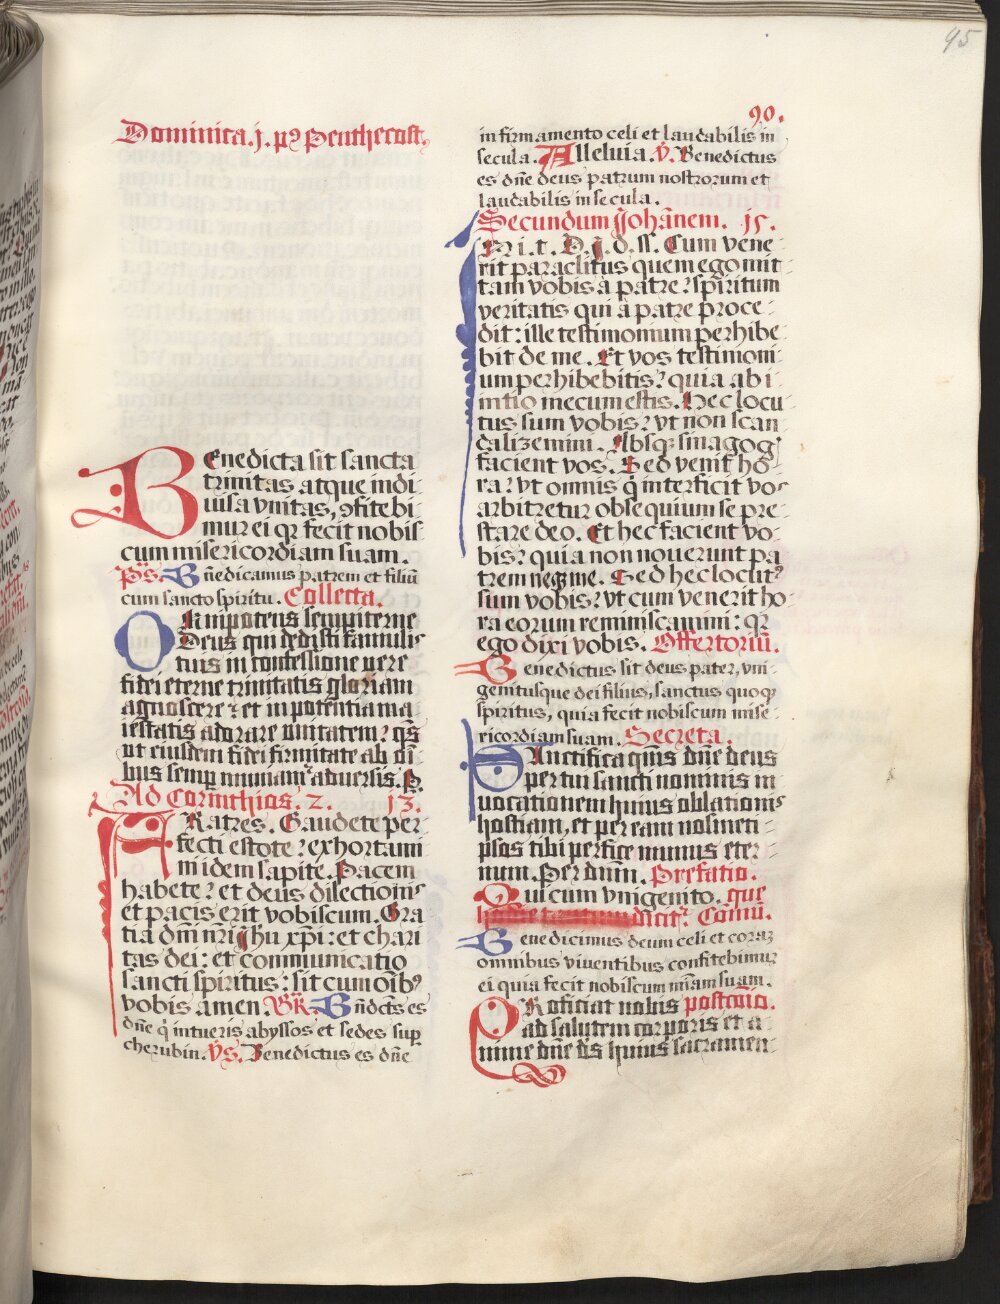 95
90.
Dominica .j. pꝰ Penthecost.
Benedicta sit sancta
trinitas atque indi
uisa vnitas, ꝯfitebi
mur ei qꝛ fecit nobis
cum misericordiam suam.
Ps. Bn̄edicamus patrem et filiū
cum sancto spiritu. Collecta.
Omnipotens sempiterne
Deus qui dedisti famulis
tuis in confessione vere
fidei eterne trinitatis gloriam
agnoscere ⁊ et in potentia ma
iestatis adorare unitatem ⁊ qs̄
ut eiusdem fidei firmitate ab oī
bus semp muniamᷣ aduersis. P
Ad Corinthios. 2. 13.
FRatres. Gaudete per
fecti estote ⁊ exhortami
ni idem sapite. Pacem
habete ⁊ et deus dilectionis
et pacis erit vobiscum. Gra
tia dn̄i nr̄i ihu xp̄i : et chari
tas dei : et communicatio
sancti spiritus : sit cum oībꝰ
vobis amen. Gr̄. Bn̄dcts es
dn̄e q̇ intueris abyssos et sedes sup
cherubin. Vs. Benedictus es dn̄e
in firmamento celi et laudabilis in
secula. Alleluia. V̄. Benedictus
es dn̄e deus patrum nostrorum et
laudabilis in secula.
Secundum Johānem. 15.
In i. t. D. J. d. ss. Cum vene
rit paraclitus quem ego mit
tam vobis a patre ⁊ spiritum
veritatis qui a patre proce
dit : ille testimonium perhibe
bit de me. Et vos testimoni
um perhibebitis ⁊ quia ab i
nitio mecum estis. Hec locu
tus sum vobis ⁊ vt non scan
dalizemini. Absqꝫ sinagogꝭ
facient vos. Sed venit ho
ra ⁊ vt omnis q̇ interficit vos
arbitretur obsequium se pre
stare deo. Et hec facient vo
bis ⁊ quia non nouerunt pa
trem neqꝫ me. Sed hec locutꝰ
sum vobis ⁊ vt cum venerit ho
ra eorum reminiscamini : qꝛ
ego dixi vobis. Offertoriū.
Benedictus sit deus pater, vni
genitusque dei filius, sanctus quoqꝫ
spiritus, quia fecit nobiscum mise
ricordiam suam. Secreta.
Sanctifica qm̄s dn̄e deus
per tui sancti nominis in
uocationem huius oblationis
hostiam, et per eam nosmeti
psos tibi perfice munus eter
num. Per dnm. Prefatio.
Qui cum vnigenito. que
dicitᷣ. Com̄u.
Benedicimus deum celi et coraꝫ
omnibus viuentibus confitebimuꝫ
ei quia fecit nobiscum mīam suam.
PRoficiat nobis postcōio.
ad salutem corporis et a
nime dn̄e ds̄ huius sacramen